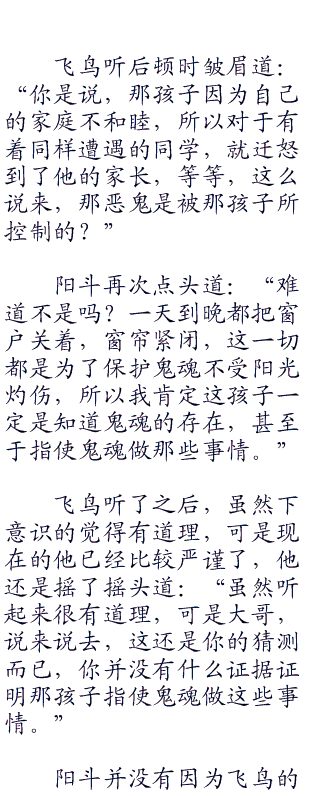 飞鸟听后顿时皱眉道：
“你是说，那孩子因为自己
的家庭不和睦，所以对于有
着同样遭遇的同学，就迁怒
到了他的家长，等等，这么
说来，那恶鬼是被那孩子所
控制的？”
阳斗再次点头道：“难
道不是吗？一天到晚都把窗
户关着，窗帘紧闭，这一切
都是为了保护鬼魂不受阳光
灼伤，所以我肯定这孩子一
定是知道鬼魂的存在，甚至
于指使鬼魂做那些事情。”
飞鸟听了之后，虽然下
意识的觉得有道理，可是现
在的他已经比较严谨了，他
还是摇了摇头道：“虽然听
起来很有道理，可是大哥，
说来说去，这还是你的猜测
而已，你并没有什么证据证
明那孩子指使鬼魂做这些事
情。”
阳斗并没有因为飞鸟的